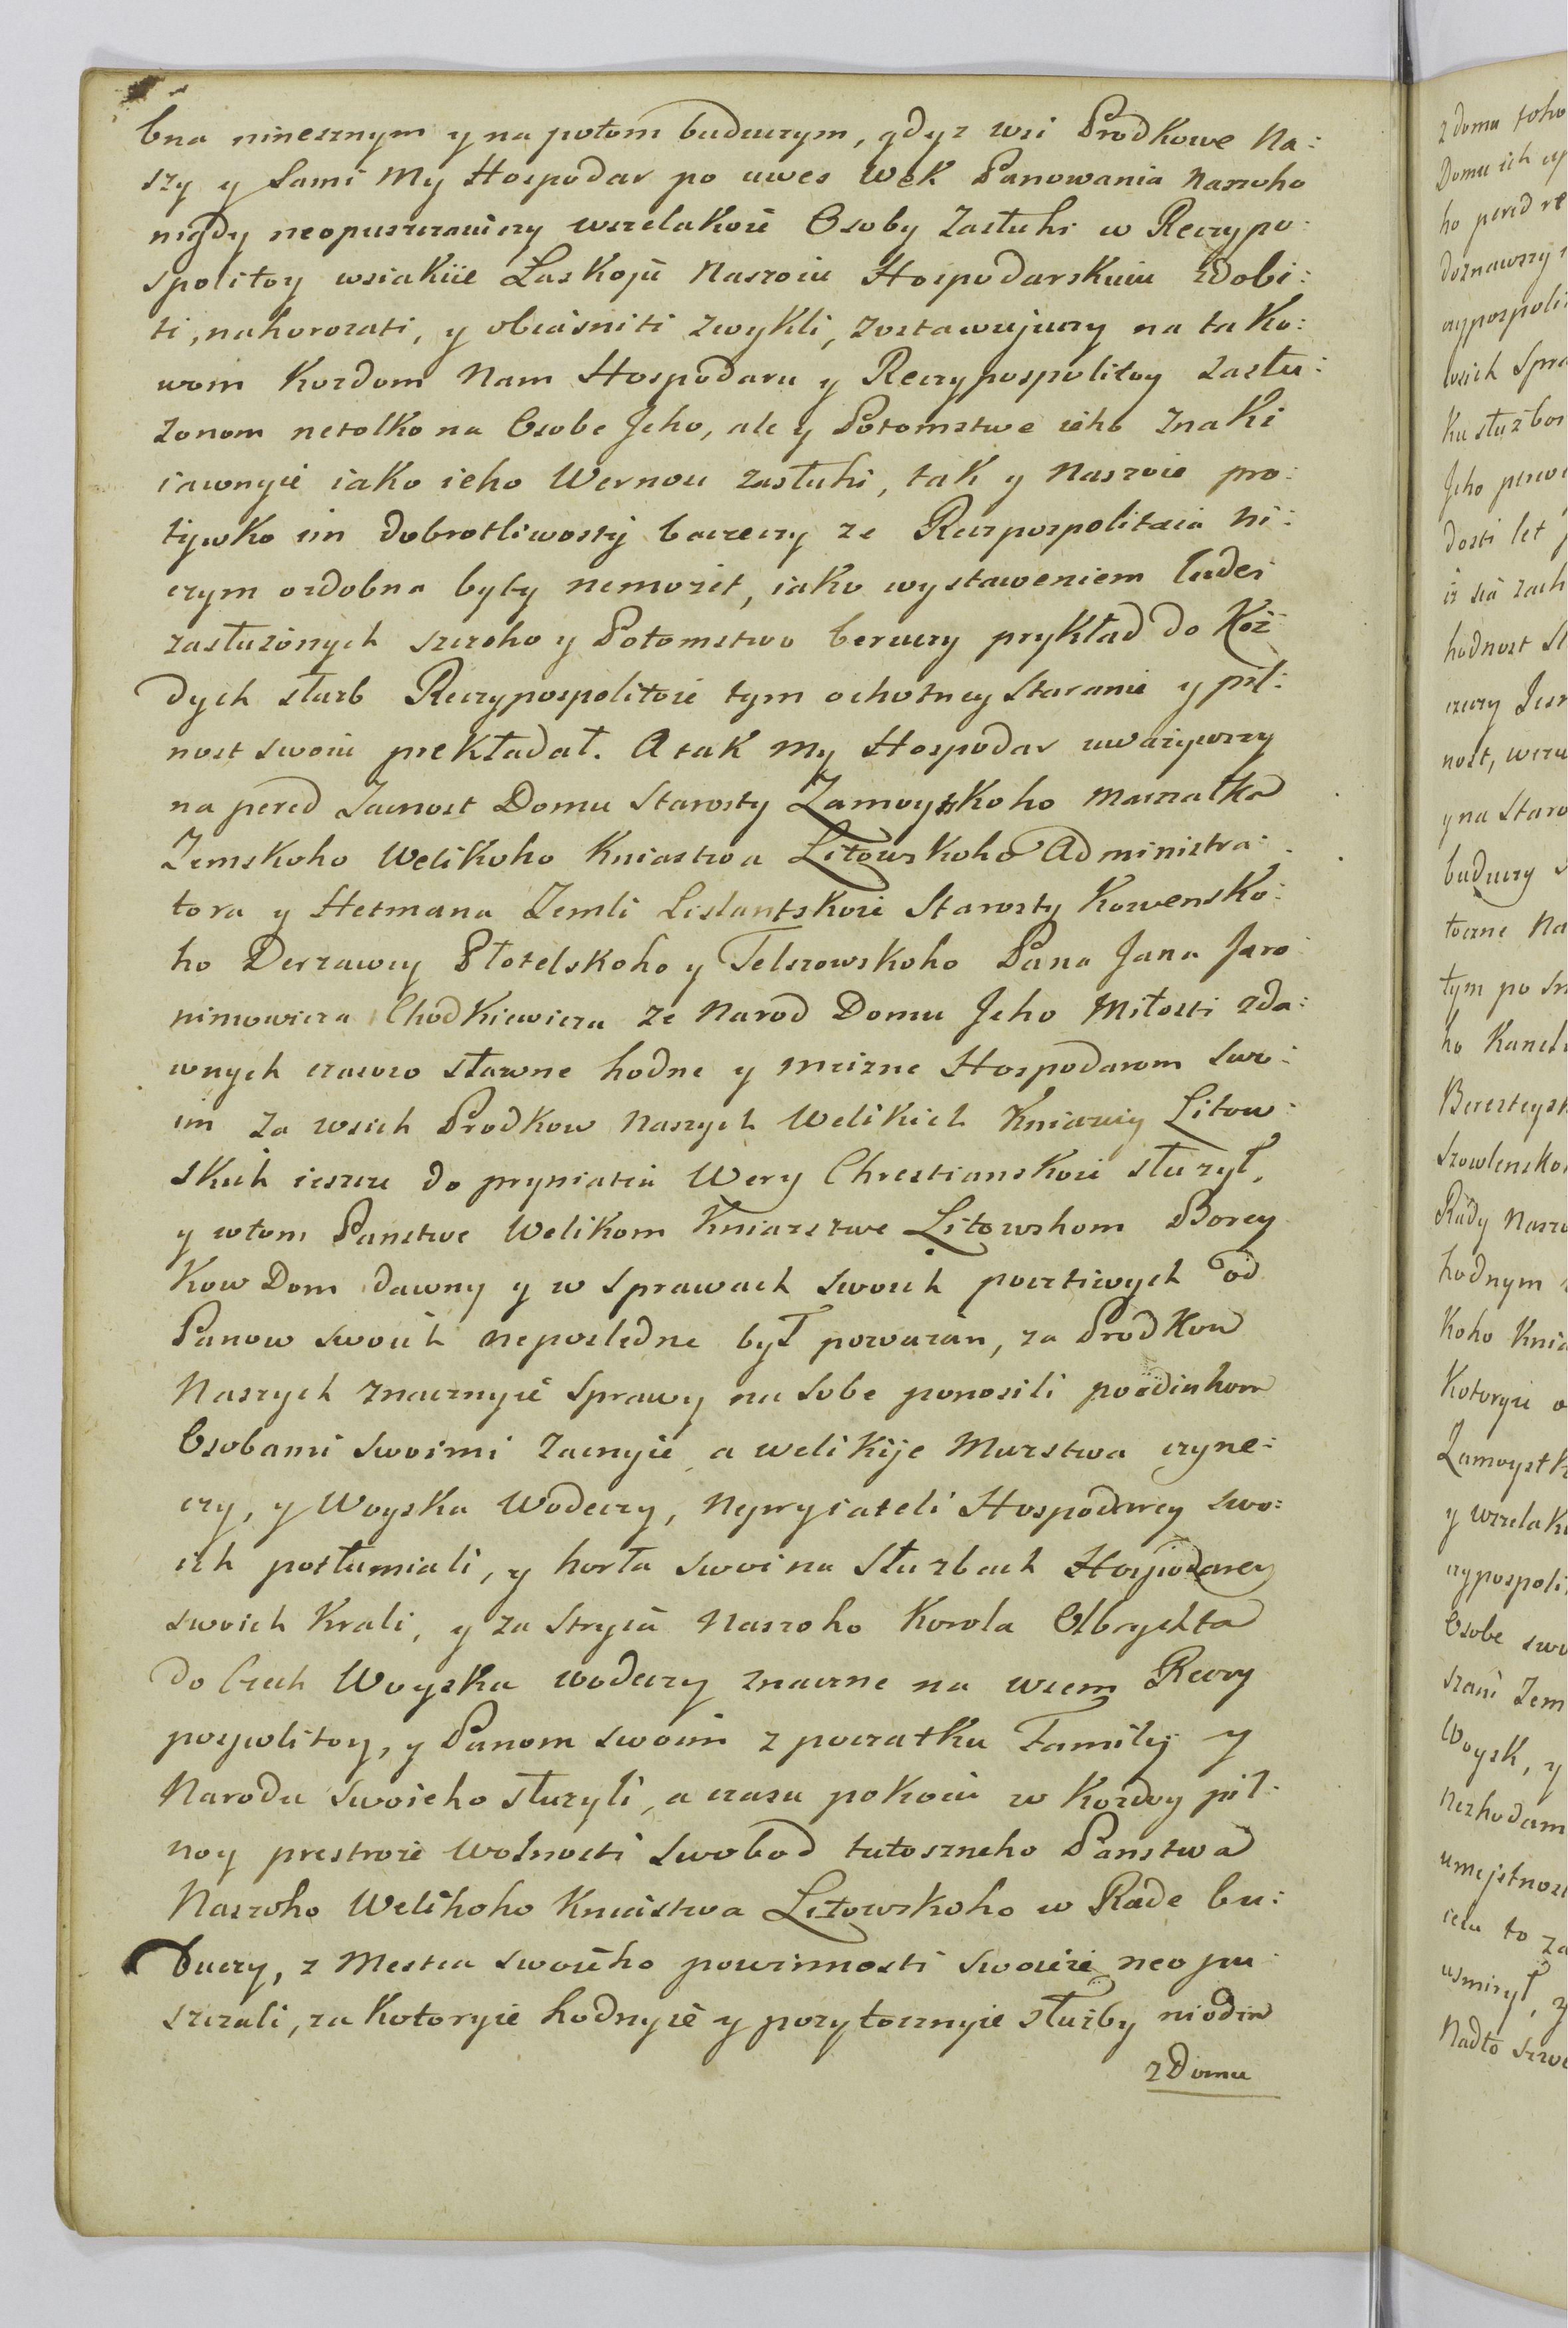 bna ninesznym y na potom buduczym, gdyz wsi Prodkowe Na:
szy y Sami My Hospodar po uwes Wek Panowania Naszoho
nigdy neopuszczaiuczy wszelakoie Osoby Zasluhi w Reczypo:
spolitoy wsiakiie Łaskojū Naszoiu Hospodarskuiu zdobi:
ti, nahorozati, y obiasniti zwykli, zostawujuczy na tako:
wom Kozdom Nam Hospodaru y Reczypospolitoy zaslu:
zonom netolko na Osobe Jeho, ale y Potomstwe ieho Znaki
iawnyie iako ieho Wernou zasłuhi, tak y Naszoie pro:
tywko im dobrotliwosty baczeczy ze Reczpospolitaia ni:
czym ozdobna byty nemożet, iako wystaweniem ludei
zasłużonych szczoho y Potomstwo beruczy prykład do Koż:
dych słuzb Reczypospolitoie tym ochotney Staranie y pil:
nost swoiu prekładał. A tak My Hospodar uważywszy
na pered Zacnost Domu Starosty Zamoyskoho Marszałka
Zemskoho Welikoho Kniastwa Litowskoho Administra:
tora y Hetmana Zemli Liflantskoie Starosty Kowensko:
ho Derzawcy Płotelskoho y Telszowskoho Pana Jana Jaro
nimowicza Chodkiewicza ze Narod Domu Jeho Miłosti zda:
wnych czasow sławne hodne y mużne Hospodarom swo:
im za wsich Prodkow Naszych Welikich Kniaziey Litow:
skich ieszcze do pryniatia Wery Chrestianskoie służył,
y wtom Panstwe Welikom Kniazstwe Litowskom Borey
kow Dom dawny y w sprawach swoich poczciwych od
Panow swoich neposledne był powazan, za Prodkow
Naszych znacznyie Sprawy na sobe ponosili poodinkom
Osobami swoimi Zacnyie a welikije Mużstwa czyne:
czy, y Woyska Wodeczy, Nepryiateli Hospodarey swo:
ich posłumiali, y horła swoi na Służbach Hospodarey
swoich Krali, y za Stryia Naszoho Korola Olbrychta
do Czech Woyska wodeczy znaczne na wsem Reczy
pospolitoy, y Panom swoim z poczatku Familij y
Narodu swoieho służyli, a czasu pokoiu w Kozdoy pil:
noy prestroie Wolnosti Swobod tutoszneho Panstwa
Naszoho Welikoho Kniastwa Litowskoho w Rade bu:
duczy, z Mestca swoieho powinnosti swoieie neopu:
szczali, za Kotoryie hodnyie y pozytocznyie słuzby niodin
z Domu